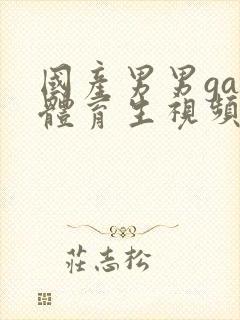 國產男男ga
體育生視頻
莊志松